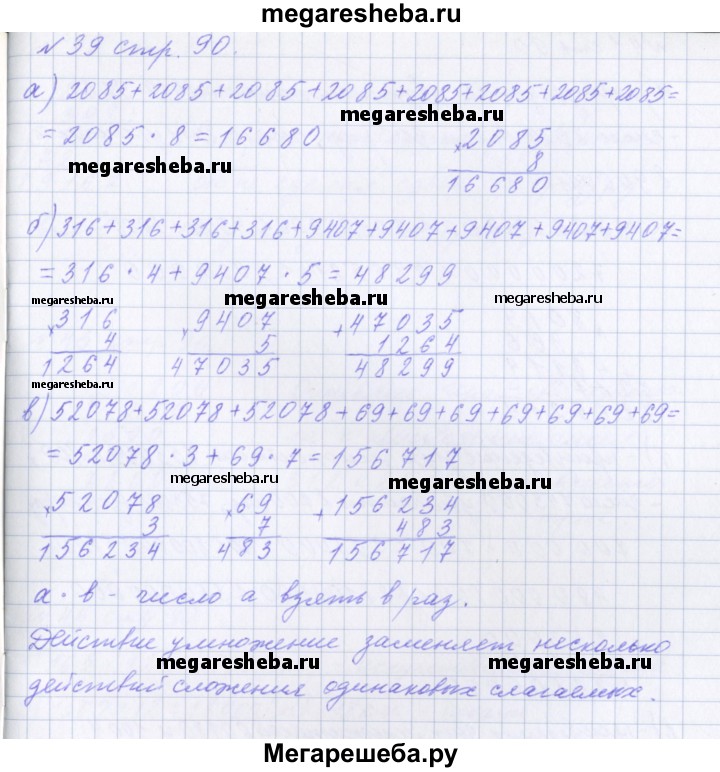 megaresheba.ru
№ 39 стр. 90.
а) 2085+2085+2085+2085+2085+2085+2085+2085=
megaresheba.ru
= 2085 · 8 = 16680
megaresheba.ru
× 2085
8
16680
б) 316+316+316+316+9407+9407+9407+9407+9407=
= 316 · 4 + 9407 · 5 = 48299
megaresheba.ru megaresheba.ru megaresheba.ru
× 316
4
1264
× 9407
5
47035
+ 47035
1264
48299
megaresheba.ru
в) 52078+52078+52078+69+69+69+69+69+69+69=
= 52078 · 3 + 69 · 7 = 156717
megaresheba.ru megaresheba.ru
× 52078
3
156234
× 69
7
483
+ 156234
483
156717
а · в - число а взять в раз.
Действие умножение заменяет несколько
megaresheba.ru megaresheba.ru
действий сложения одинаковых слагаемых.
Мегарешеба.ру